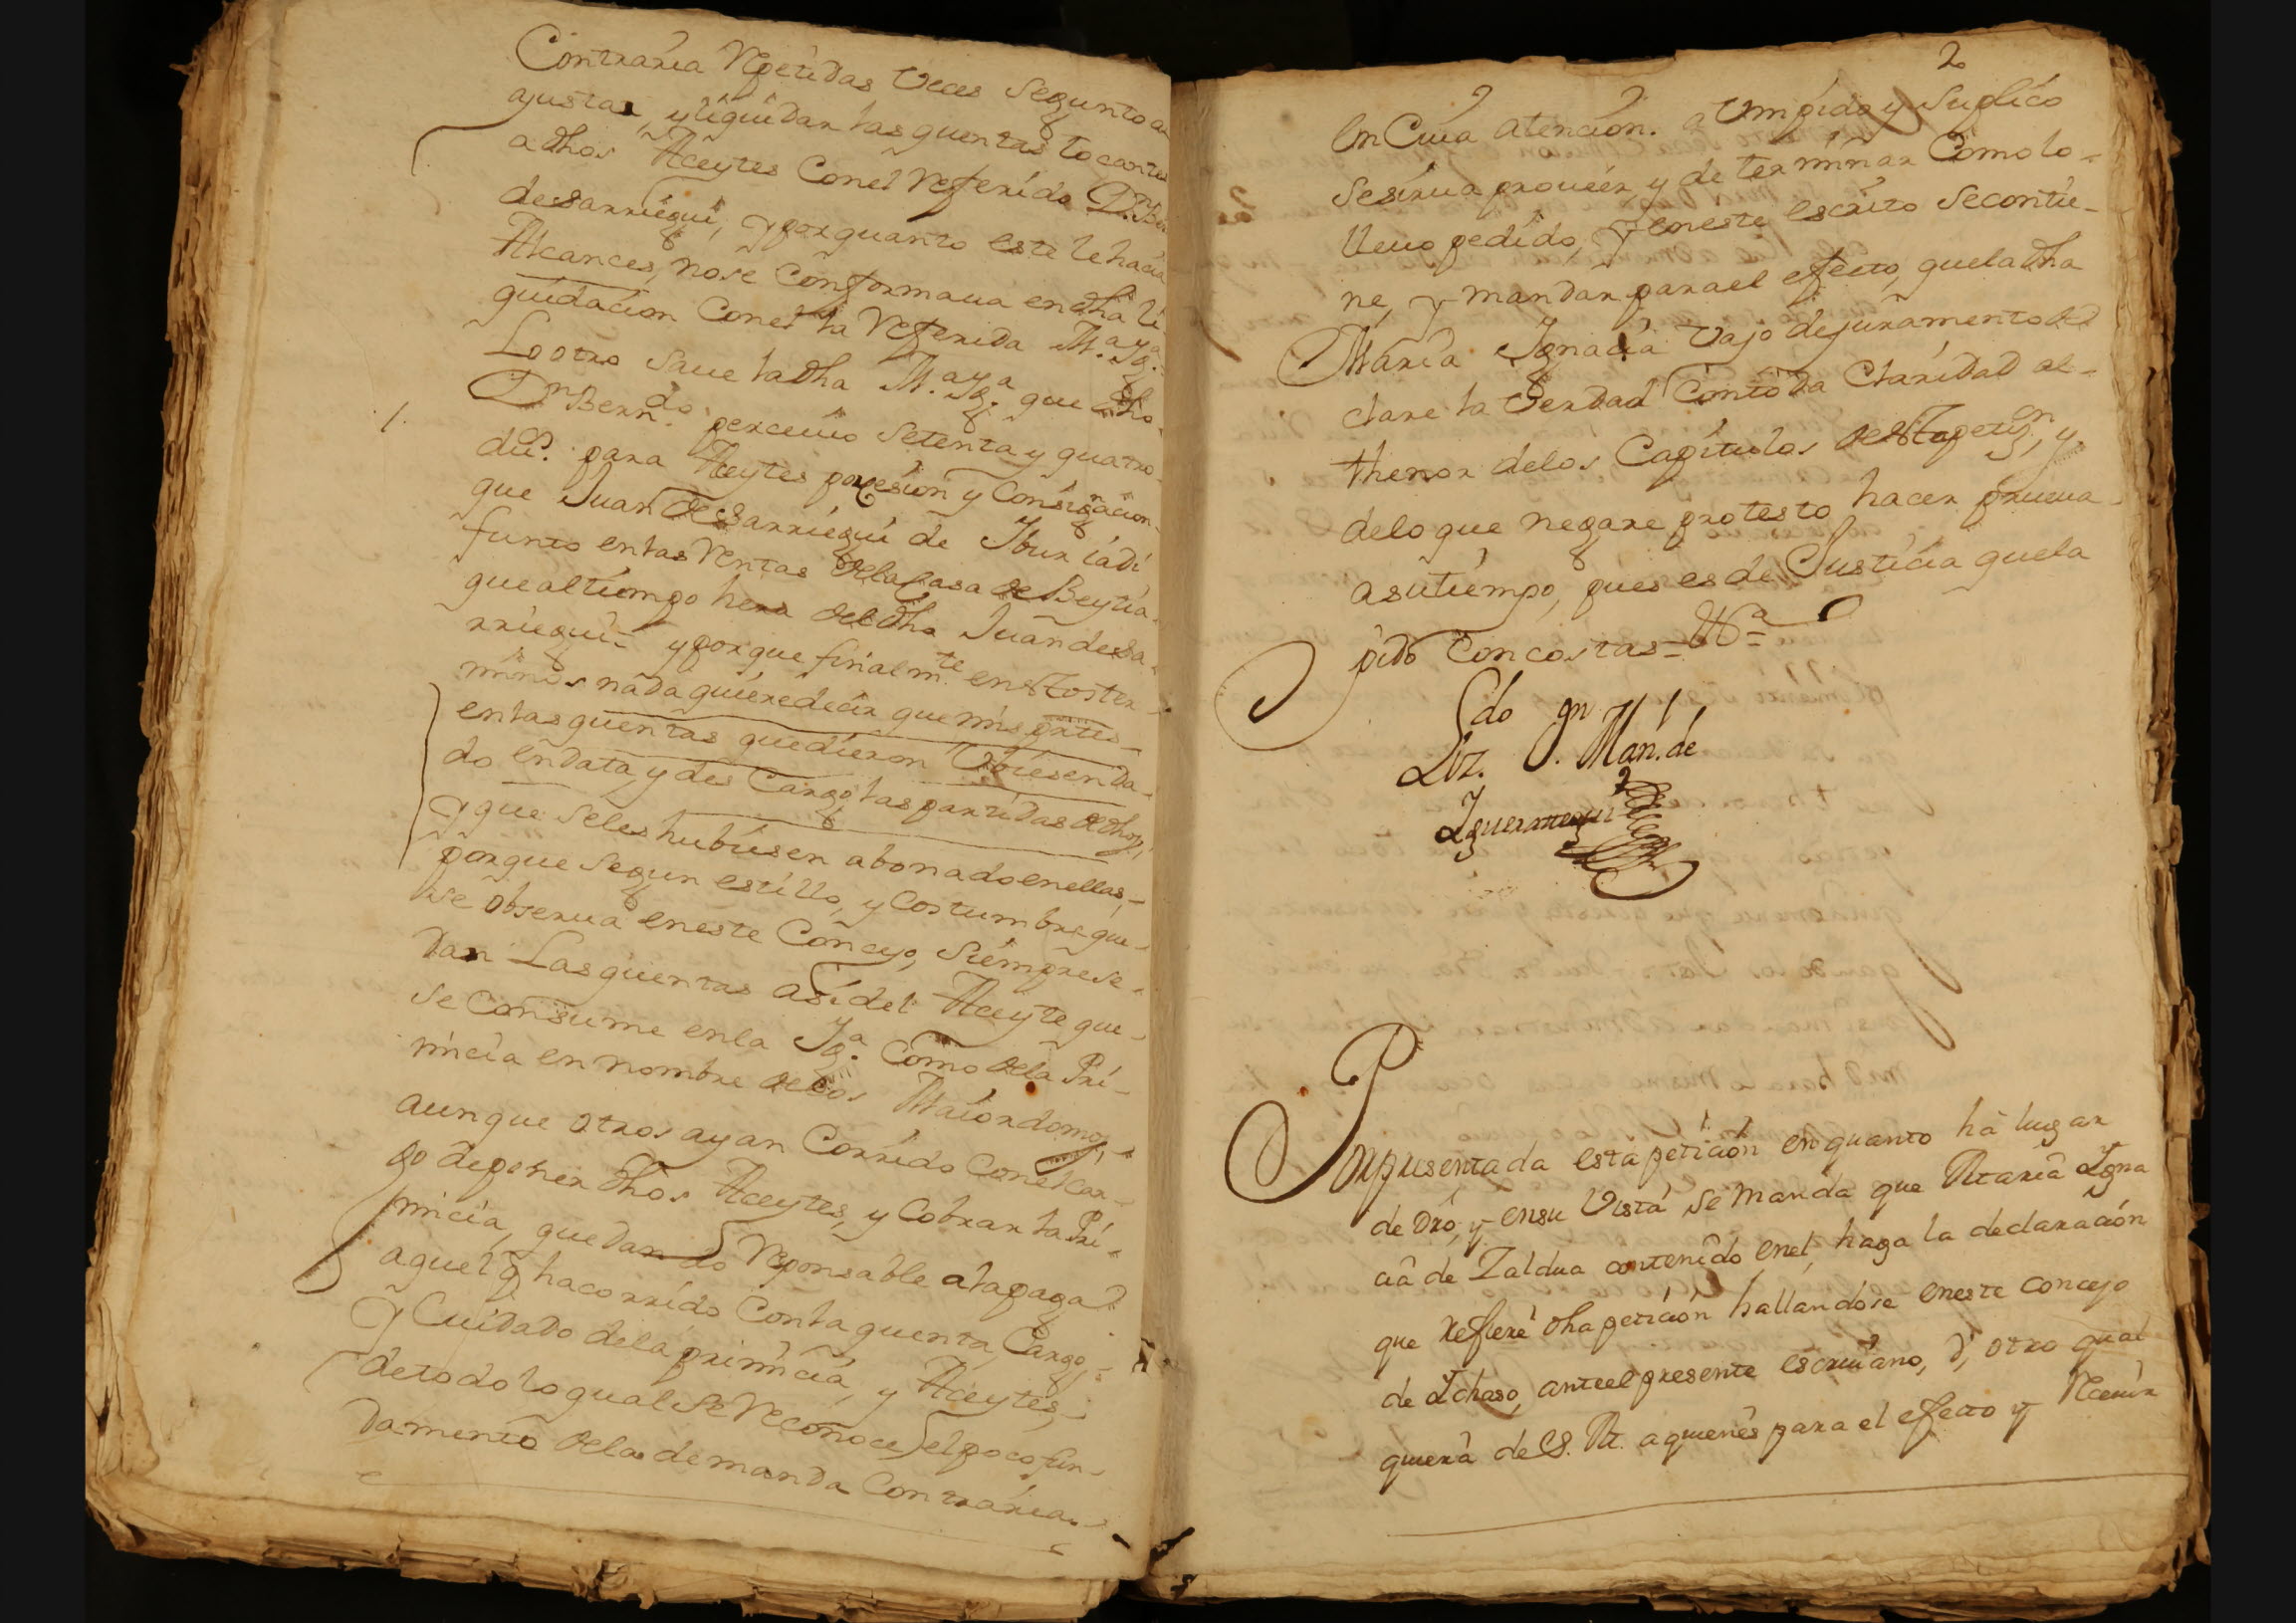 Contraria Repetidas Veces Segunto a
ajustar, y liquidar las quentas tocantes
adhos Aceytes Conel Referido D.n Ber
desarriegui, y porquanto este le hacia
Alcances, nose Conformaua endha li
quidacion Conel la Referida M.a Ig.a
Lo otro Saue ladha M.a Ig.a que dho
1. D.n Bern.do perceuio Setenta y quatro
du.s para Aceytes por Cesion y Consignacion
que Juan de Sarriegui de Iburiadi
funto enlas Rentas dela Casa de Beytia
que altiempo hera deldho Juan de Sa
rriegui y porque finalm.te en Aos ter
minos nada quiere decir que mis partes
enlas quentas que dieron Vbiesen da
do endata, y des Cargo las partidas de dhos,
y que Seles hubiesen abonado enellas,
porque Segun estillo, y Costumbre que
se obserua eneste Concejo, Siempre se
dan Las quentas asi del Aceyte que
se Consume enla Ig.a Como dela Pri
micia en nombre delos Maiordomos,
aunque otros ayan Corrido Conel Car
go deponer dhos Aceytes, y Cobrar la Pri
micia, quedando Reponsable alapaga
aquel q hacorrido Conla quenta, Cargo,
y Cuidado dela primicia, y Aceytes,
detodo loqual se Reconoce, el poco fun
damento dela demanda Contraria.
2
En Cuia atencion. a Vm pido y Suplico
Sesirua proueer, y determinar Como lo
lleuo pedido, y eneste escrito Secontie
ne, y mandar parael efecto, queladha
Maria Ignacia Vajo dejuramento de
clare la Verdad Contoda Claridad al
thenor delos Capitulos desta petiz.on, y
delo que negare protesto hacer prueua
asutiempo, pues es de Justicia quela
pido Con costas=
Liz.do Jn Man. de
Presentada esta peticion enquanto há lugar
de dro, y ensu Vista se manda que Maria Igna
cia de Zaldua contenido enel, haga la declaracion
que refiere dha peticion hallandose eneste concejo
de Ichaso, anteel presente escriuano, ò, otro qual
quiera de S. M. aquienes para el effecto y Receuir